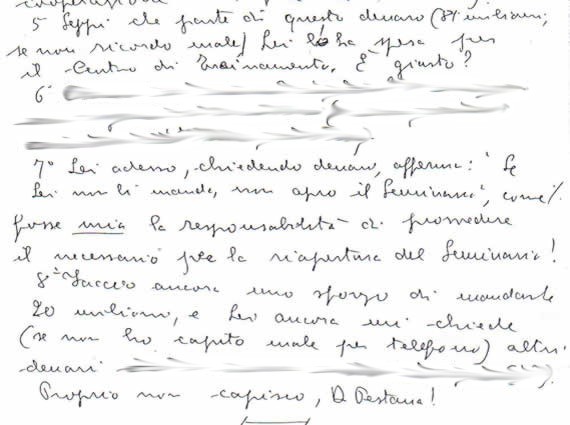 cooperazione
5 Seppi che parte di questo denaro (84 milioni,
se non ricordo male) Lei lo ha spesa per
il Centro di Trainamento. È giusto?
6°
7° Lei adesso, chiedendo denaro, afferma: "Se
Lei non li manda, non apro il Seminario", come
fosse mia la responsabilità di provvedere
il necessario per la riapertura del Seminario!
8° Faccio ancora uno sforzo di mandarle
20 milioni, e Lei ancora mi chiede
(se non ho capito male per telefono) altri
denari
Proprio non capisco, D. Pestana!